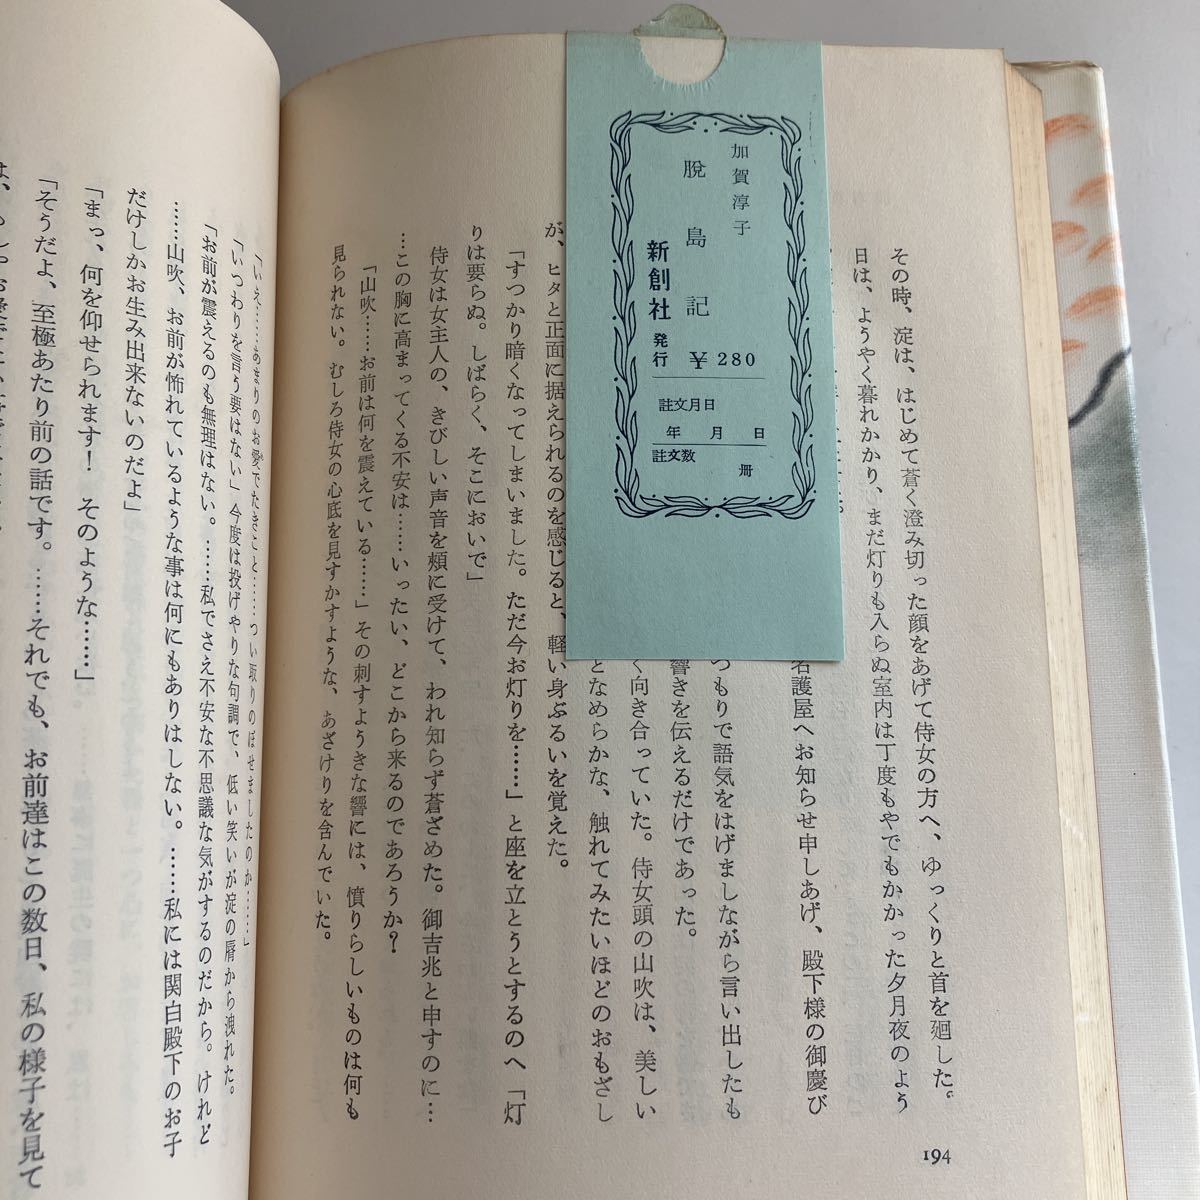 加賀淳子
脱島記
新創社 発行
¥280
註文月日
年 月 日
註文数 冊
その時、淀は、はじめて蒼く澄み切った顔をあげて侍女の方へ、ゆっくりと首を廻した。
日は、ようやく暮れかかり、まだ灯りも入らぬ室内は丁度もやでもかかった夕月夜のよう
名護屋へお知らせ申しあげ、殿下様の御慶び
つもりで語気をはげましながら言い出したも
響きを伝えるだけであった。
く向き合っていた。侍女頭の山吹は、美しい
となめらかな、触れてみたいほどのおもざし
が、ヒタと正面に据えられるのを感じると、軽い身ぶるいを覚えた。
「すつかり暗くなってしまいました。ただ今お灯りを……」と座を立とうとするのへ「灯
りは要らぬ。しばらく、そこにおいで」
侍女は女主人の、きびしい声音を頰に受けて、われ知らず蒼ざめた。御吉兆と申すのに…
…この胸に高まってくる不安は……いったい、どこから来るのであろうか?
「山吹……お前は何を震えている……」その刺すようきな響には、憤りらしいものは何も
見られない。むしろ侍女の心底を見すかすような、あざけりを含んでいた。
194
「いえ……あまりのお愛でたきこと……つい取りのぼせましたのか……」
「いつわりを言う要はない」今度は投げやりな句調で、低い笑いが淀の唇から洩れた。
「お前が震えるのも無理はない。……私でさえ不安な不思議な気がするのだから。けれど
……山吹、お前が怖れているような事は何にもありはしない。……私には関白殿下のお子
だけしかお生み出来ないのだよ」
「まっ、何を仰せられます! そのような……」
「そうだよ、至極あたり前の話です。……それでも、お前達はこの数日、私の様子を見て